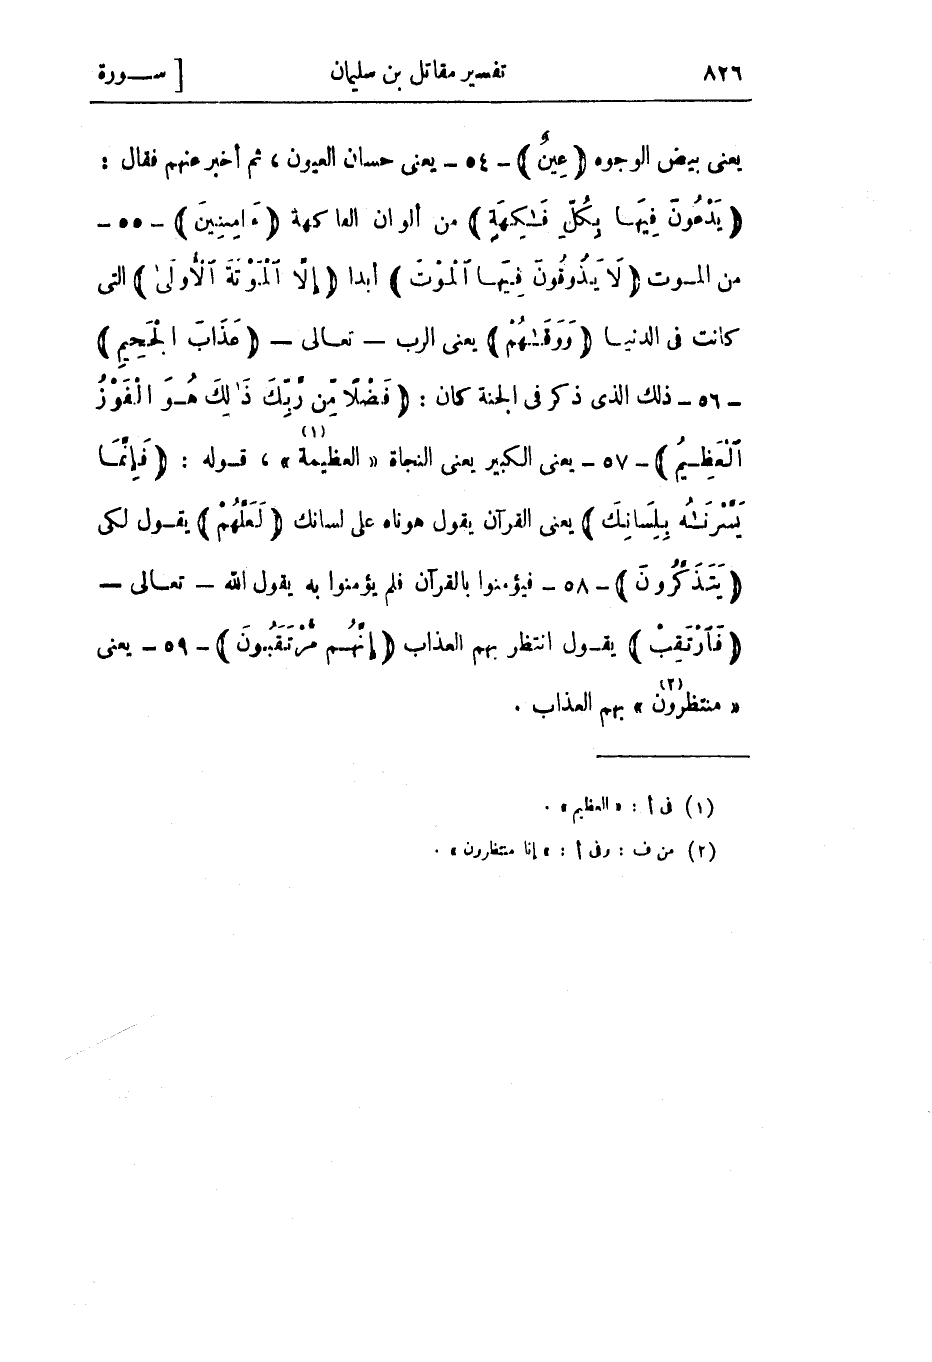 ٨٢٦ تفسير مقاتل بن سليمان [ ســورة
يعنى بيض الوجوه ( عِينٌ ) ـ ٥٤ ـ يعنى حسان العيون ، ثم أخبر عنهم فقال :
( يَدْعُونَ فِيهَـا بِكُلِّ فَـٰكِهَةٍ ) من ألوان الفاكهة ( ءَامِنِينَ ) ـ ٥٥ ـ
من المـوت ( لَا يَذُوقُونَ فِيَهـا ٱلْمَوْتَ ) أبدا ( إِلَّا ٱلْمَوْتَةَ ٱلْأُولَىٰ ) التى
كانت فى الدنيـا ( وَوَقَـٰهُمْ ) يعنى الرب ــ تعـالى ــ ( عَذَابَ الْجَحِيمِ )
ـ ٥٦ ـ ذلك الذى ذكر فى الجنة كان : ( فَضْلًا مِّن رَّبِّكَ ذَٰلِكَ هُـوَ الْفَوْزُ
ٱلْعَظِـيمُ ) ـ ٥٧ ـ يعنى الكبير يعنى النجاة « العظيمة (١) » ، قـوله : ( فَإِنَّمَـا
يَسَّرْنَـٰهُ بِلِسَانِكَ ) يعنى القرآن يقول هوناه على لسانك ( لَعَلَّهُمْ ) يقـول لكى
( يَتَذَكَّرُونَ ) ـ ٥٨ ـ فيؤمنوا بالقرآن فلم يؤمنوا به يقول الله ــ تعـالى ــ
( فَٱرْتَقِبْ ) يقـول انتظر بهم العذاب ( إِنَّهُـم مُّرْتَقِبُونَ ) ـ ٥٩ ـ يعنى
« منتظرون (٢) » بهم العذاب .
(١) فى أ : « العظيم » .
(٢) من ف : وفى أ : « إنا منتظرون » .